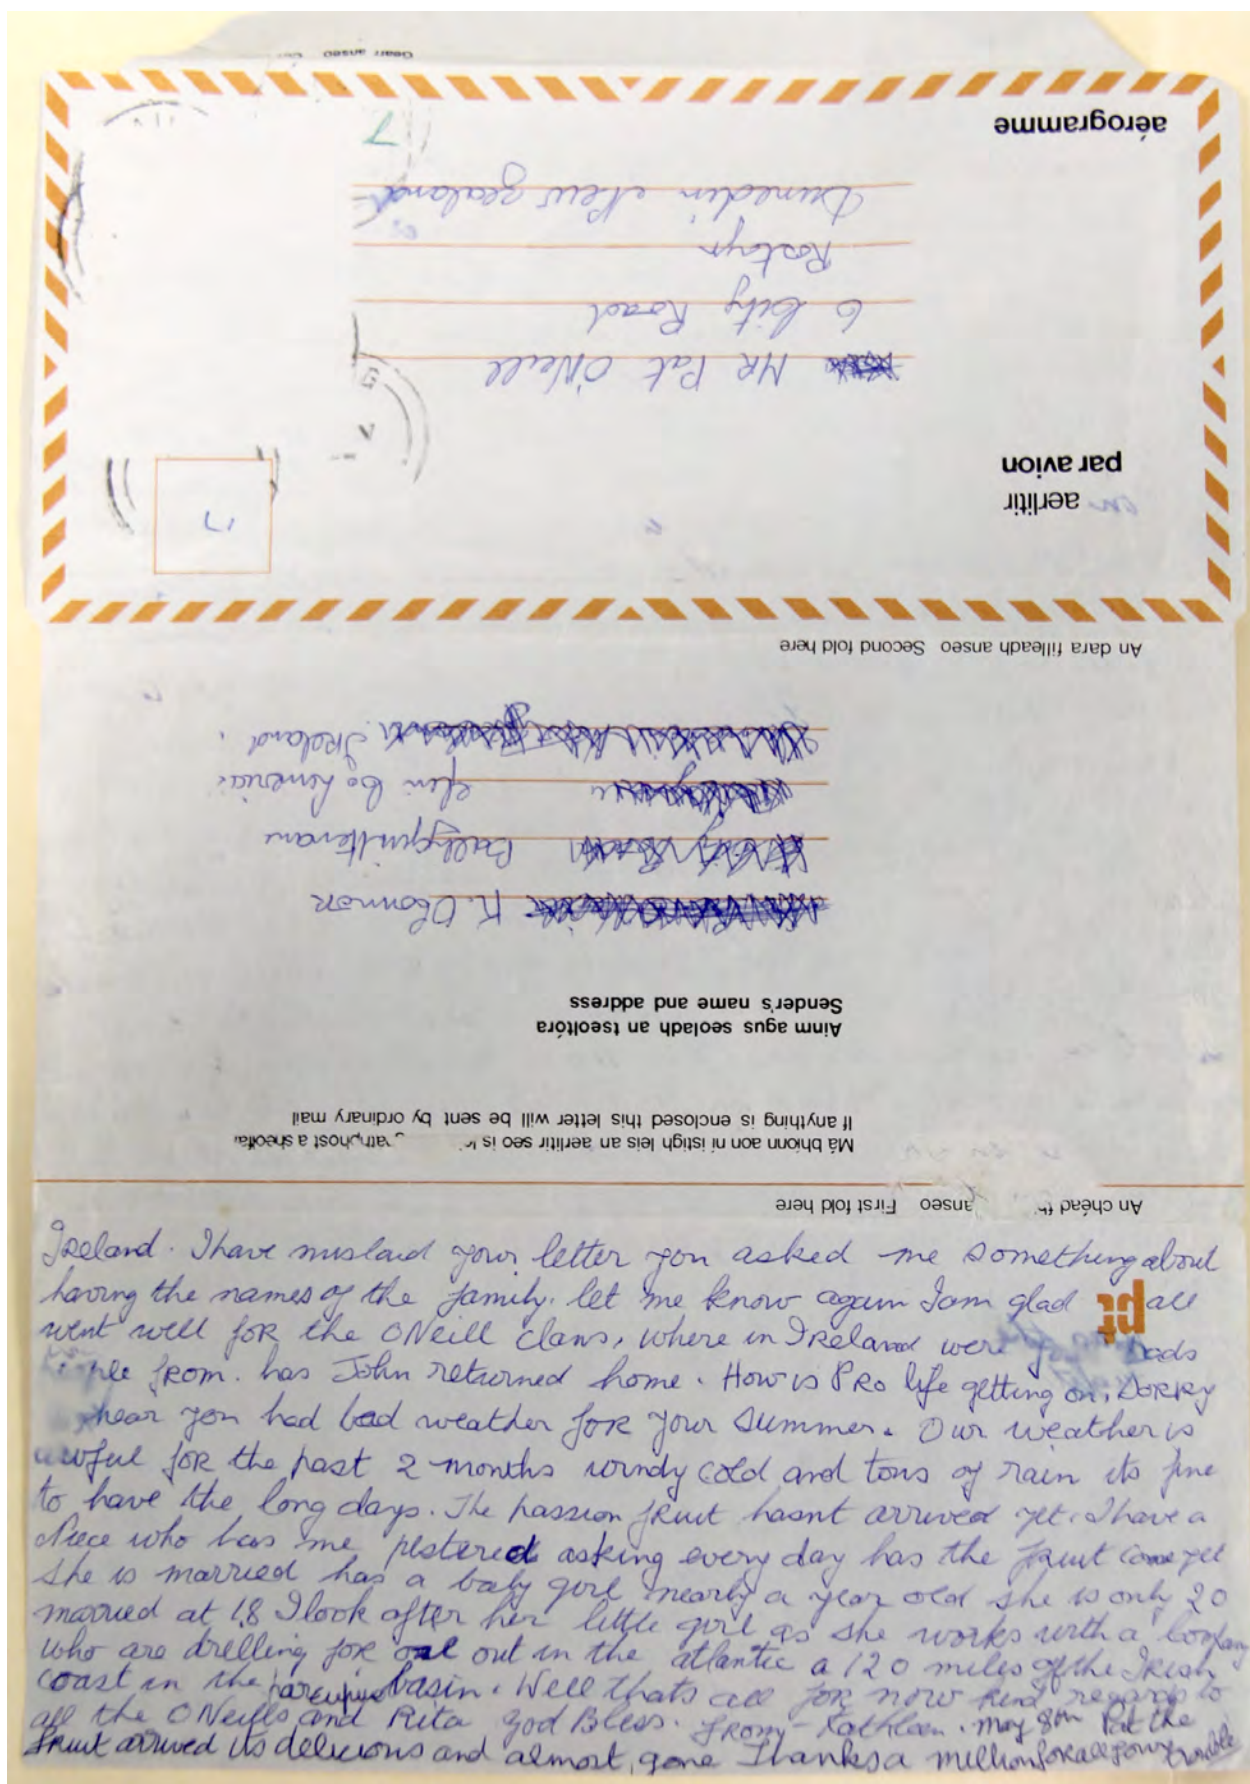 Gearr anseo
aérogramme
7
Dunedin New Zealand
Roslyn
6 City Road
MR Pat O'Neill
par avion
aerlitir
An dara filleadh anseo Second fold here
Ireland.
Efin Co Limerick.
Ballyguilterane
K. OConnor
Sender's name and address
Ainm agus seoladh an tseoltóra
If anything is enclosed this letter will be sent by ordinary mail
Má bhíonn aon ní istigh leis an aerlitir seo is a sheolfar
An chéad anseo First fold here
Ireland. I have mislaid your letter you asked me something about
having the names of the family. let me know again I am glad all
went well for the ONeill clans, where in IReland were dads
from. has John returned home. How is PRo life getting on, SoRRy
hear you had bad weather for your summer. Our weather is
awful for the past 2 months windy cold and tons of rain its fine
to have the long days. The passion fruit hasnt arrived yet. I have a
Niece who has me pestered asking every day has the fruit come yet
She is married has a baby girl nearly a year old she is only 20
married at 18 I look after her little girl as she works with a Company
who are drelling for oil out in the atlantic a 120 miles of the Irish
coast in the porcupine basin. Well thats all for now kind regards to
all the ONeills and Rita God Bless. From - Kathleen. May 8th Pat the
fruit arrived its delecious and almost gone Thanks a million for all your trouble